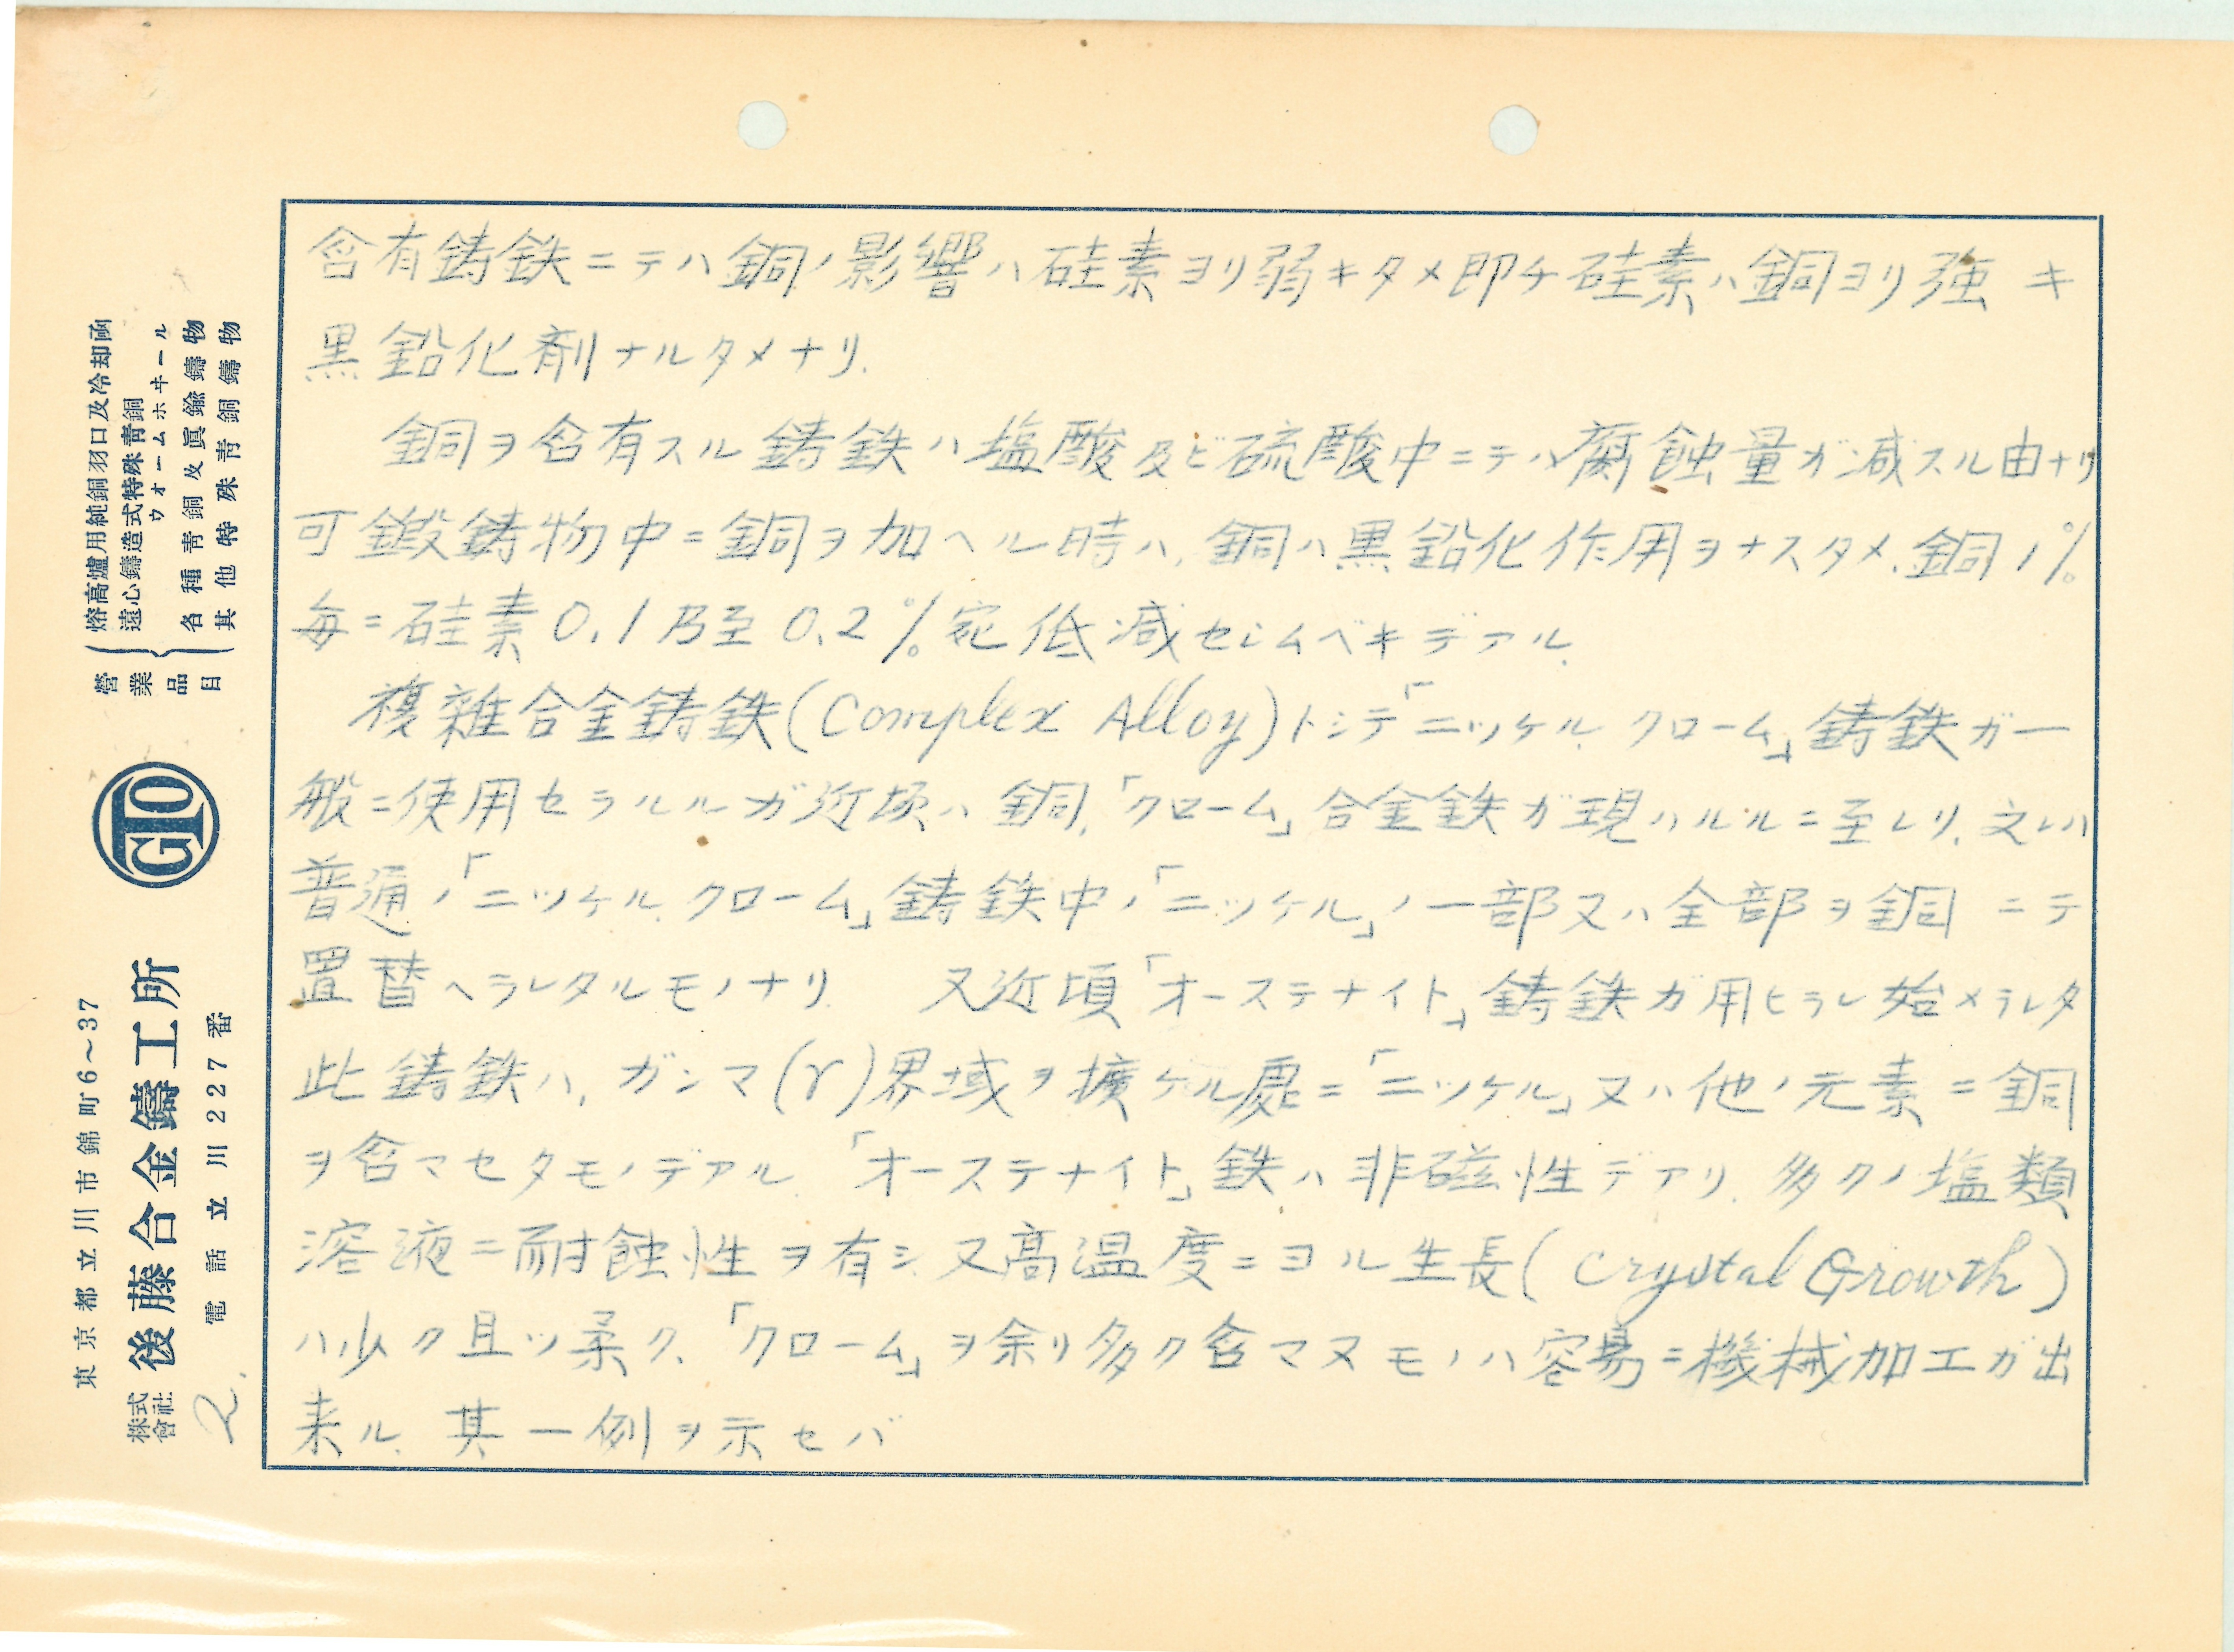 含有鋳鉄ニテハ銅ノ影響ハ硅素ヨリ弱キタメ即チ硅素ハ銅ヨリ強キ
黒鉛化剤ナルタメナリ.
銅ヲ含有スル鋳鉄ハ塩酸及ビ硫酸中ニテハ腐蝕量ガ減スル由ナリ
可鍛鋳物中ニ銅ヲ加ヘル時ハ、銅ハ黒鉛化作用ヲナスタメ、銅1%
毎ニ硅素0.1乃至0.2%宛低減セシムベキデアル.
複雑合金鋳鉄(Complex Alloy)トシテ「ニッケル、クローム」鋳鉄ガ一
般ニ使用セラルルガ近頃ハ銅、「クローム」合金鉄ガ現ハルルニ至レリ、之レハ
普通ノ「ニッケル、クローム」鋳鉄中ノ「ニッケル」ノ一部又ハ全部ヲ銅ニテ
置替ヘラレタルモノナリ 又近頃「オーステナイト」鋳鉄ガ用ヒラレ始メラレタ
此鋳鉄ハ、ガンマ(γ)界域ヲ擴ゲル處ニ「ニッケル」又ハ他ノ元素ニ銅
ヲ含マセタモノデアル.「オーステナイト」鉄ハ非磁性デアリ、多クノ塩類
溶液ニ耐蝕性ヲ有シ、又高温度ニヨル生長(Crystal Growth)
ハ少ク且ツ柔ク、「クローム」ヲ余リ多ク含マヌモノハ容易ニ機械加工ガ出
来ル、其一例ヲ示セバ
營業品目
熔高爐用純銅羽口及冷却函
遠心鑄造式特殊青銅
ウォームホヰール
各種青銅及眞鍮鑄物
其他特殊青銅鑄物
GTO
東京都立川市錦町6~37
株式會社 後藤合金鑄工所
電話立川227番
2.